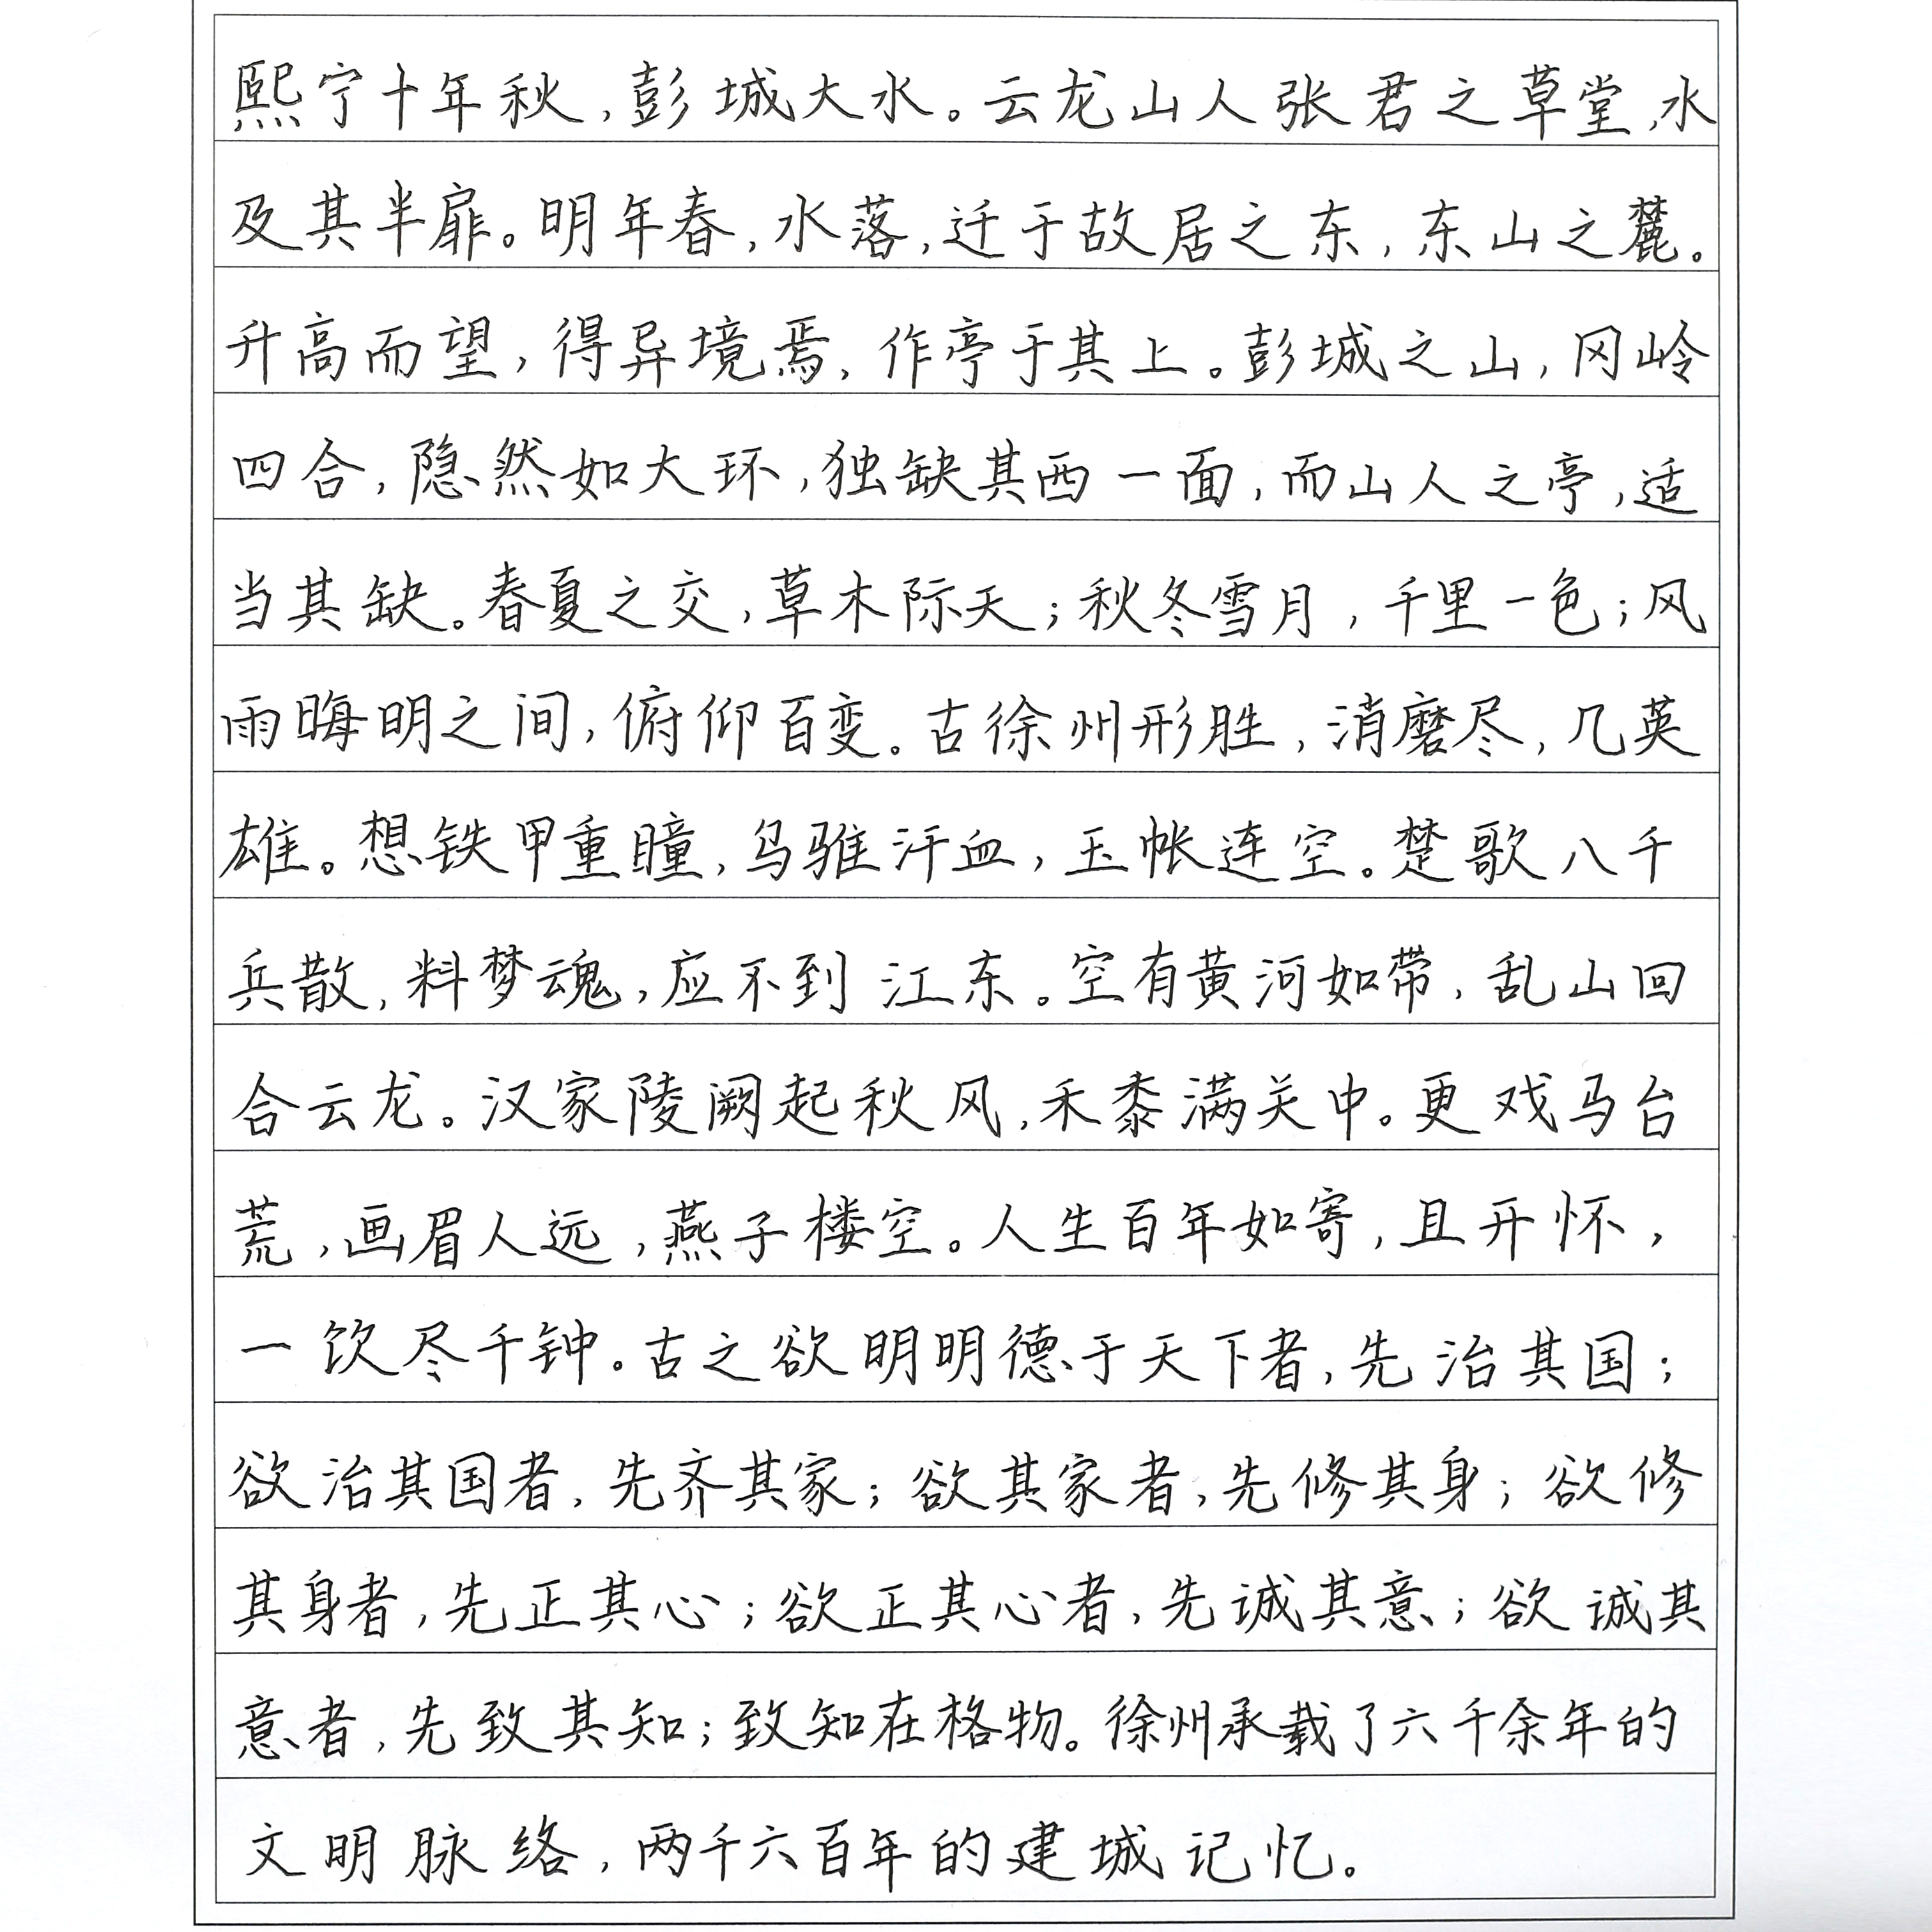 熙宁十年秋，彭城大水。云龙山人张君之草堂，水
及其半扉。明年春，水落，迁于故居之东，东山之麓。
升高而望，得异境焉，作亭于其上。彭城之山，冈岭
四合，隐然如大环，独缺其西一面，而山人之亭，适
当其缺。春夏之交，草木际天；秋冬雪月，千里一色；风
雨晦明之间，俯仰百变。古徐州形胜，消磨尽，几英
雄。想铁甲重瞳，乌骓汗血，玉帐连空。楚歌八千
兵散，料梦魂，应不到江东。空有黄河如带，乱山回
合云龙。汉家陵阙起秋风，禾黍满关中。更戏马台
荒，画眉人远，燕子楼空。人生百年如寄，且开怀，
一饮尽千钟。古之欲明明德于天下者，先治其国；
欲治其国者，先齐其家；欲其家者，先修其身；欲修
其身者，先正其心；欲正其心者，先诚其意；欲诚其
意者，先致其知；致知在格物。徐州承载了六千余年的
文明脉络，两千六百年的建城记忆。